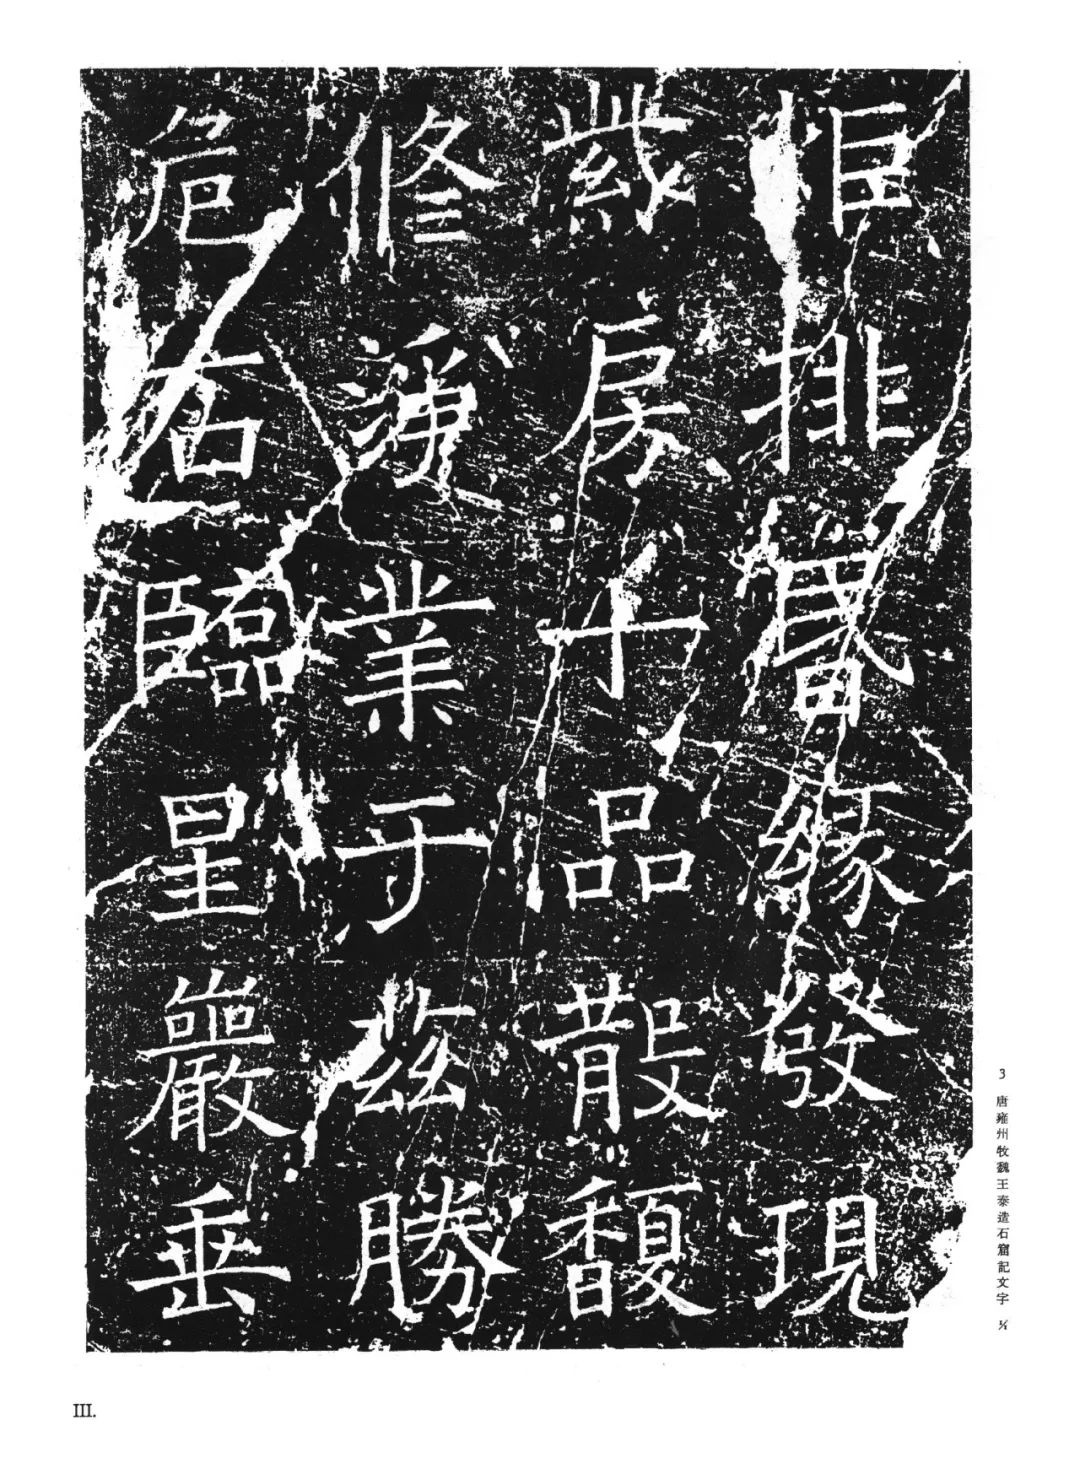 排緣發現
房千品散馥
修淨業于茲勝
危石臨星巖垂
3 唐雍州牧魏王泰造石窟記文字
III.